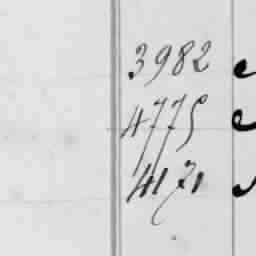 3982
4775
4171